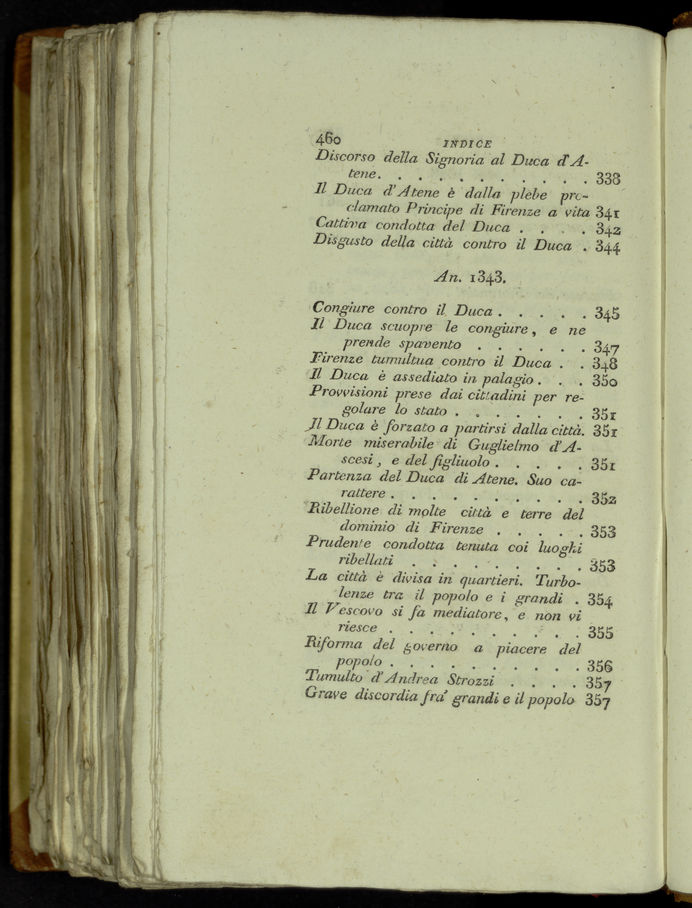 460 INDICE
Discorso della Signoria al Duca d'A-
tene. . . . . . . . . . . 338
Il Duca d'Atene è dalla plebe pro-
clamato Principe di Firenze a vita 341
Cattiva condotta del Duca . . . . 342
Disgusto della città contro il Duca . 344
An. 1343.
Congiure contro il Duca . . . . . 345
Il Duca scuopre le congiure, e ne
prende spavento . . . . . . 347
Firenze tumultua contro il Duca . . 348
Il Duca è assediato in palagio . . . 350
Provvisioni prese dai cittadini per re-
golare lo stato . . . . . . . 351
Il Duca è forzato a partirsi dalla città. 351
Morte miserabile di Guglielmo d'A-
scesi, e del figliuolo . . . . . 351
Partenza del Duca di Atene. Suo ca-
rattere . . . . . . . . . . 352
Ribellione di molte città e terre del
dominio di Firenze . . . . . 353
Prudente condotta tenuta coi luoghi
ribellati . . . . . . . . . 353
La città è divisa in quartieri. Turbo-
lenze tra il popolo e i grandi . 354
Il Vescovo si fa mediatore, e non vi
riesce . . . . . . . . . . 355
Riforma del governo a piacere del
popolo . . . . . . . . . . 356
Tumulto d'Andrea Strozzi . . . . 357
Grave discordia fra' grandi e il popolo 357